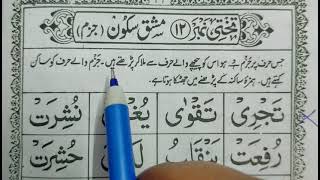 تختی نمبر ۱۳ مشق سکون (جزم)
جس حرف پر جزم ہو اس کو پیچھے والے حرف سے ملا کر پڑھتے ہیں۔ جزم والے حرف کو ساکن
کہتے ہیں۔ ہمزہ ساکنہ کے پڑھنے میں جھٹکا ہوتا ہے۔
تَجْرِىْ تَقْوٰى نُشِرَتْ
رُفِعَتْ يَنْقَلِبُ حُشِرَتْ